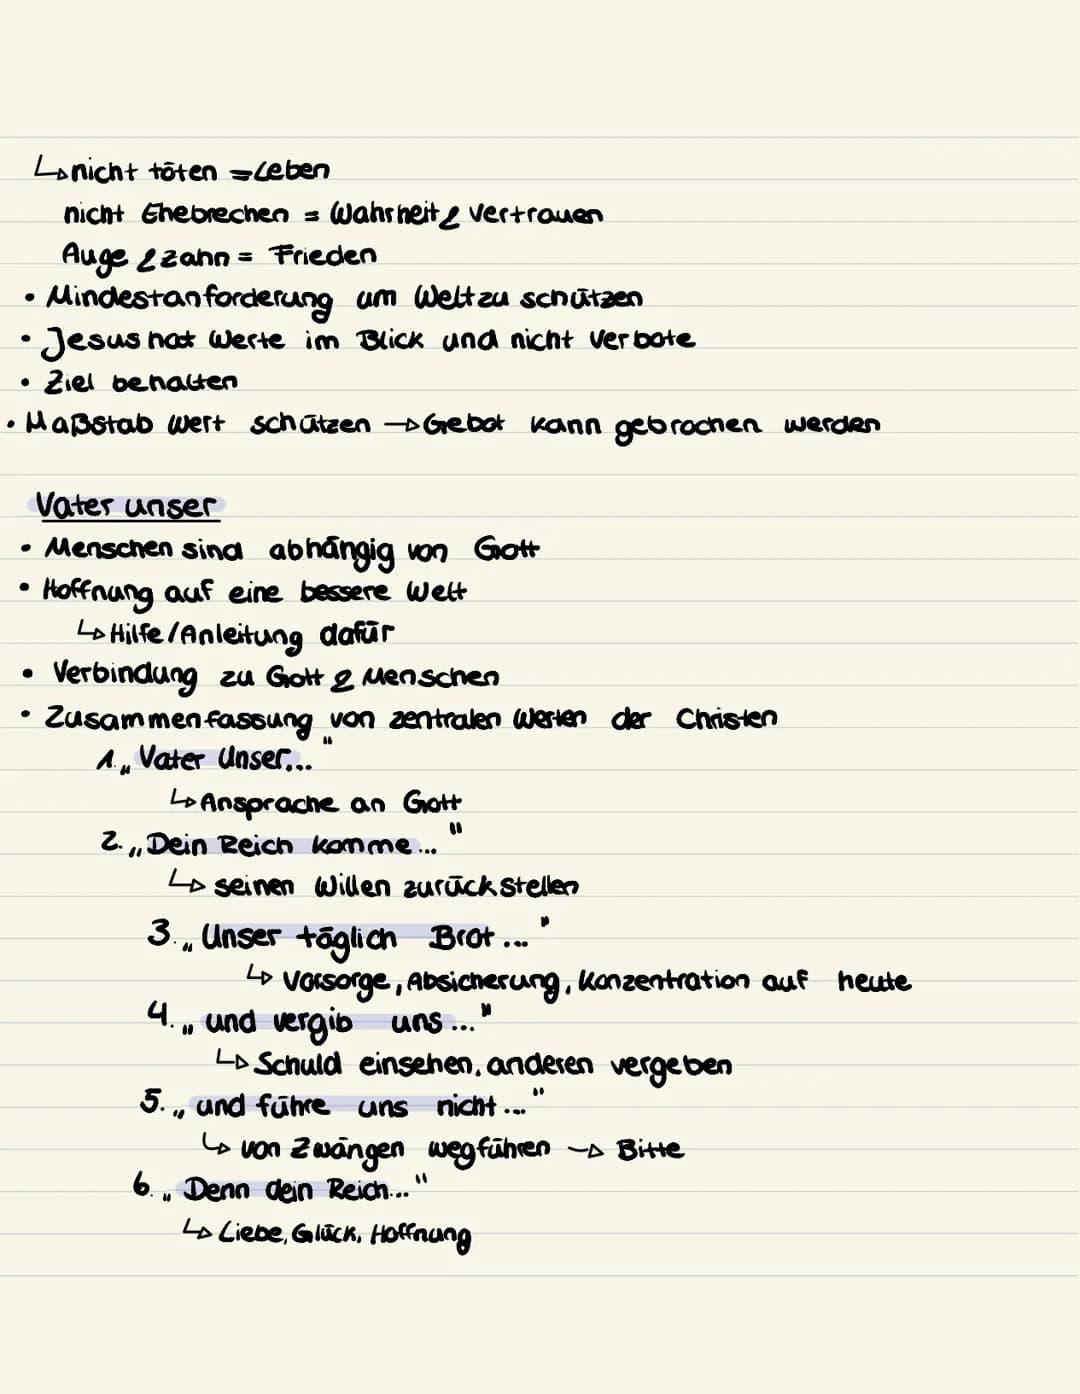 ↳ nicht töten = Leben
nicht Ehebrechen = Wahrheit & Vertrauen
Auge & Zahn = Frieden
• Mindestanforderung um Welt zu schützen
• Jesus hat Werte im Blick und nicht Verbote
• Ziel behalten
• Maßstab Wert schützen → Gebot kann gebrochen werden
Vater unser
• Menschen sind abhängig von Gott
• Hoffnung auf eine bessere Welt
↳ Hilfe/Anleitung dafür
• Verbindung zu Gott & Menschen
• Zusammenfassung von zentralen Werten der Christen
1. „Vater Unser..."
↳ Ansprache an Gott
2. „Dein Reich komme..."
↳ seinen Willen zurückstellen
3. „Unser täglich Brot..."
↳ Vorsorge, Absicherung, Konzentration auf heute
4. „und vergib uns..."
↳ Schuld einsehen, anderen vergeben
5. „und führe uns nicht..."
↳ von Zwängen wegführen → Bitte
6. „Denn dein Reich..."
↳ Liebe, Glück, Hoffnung